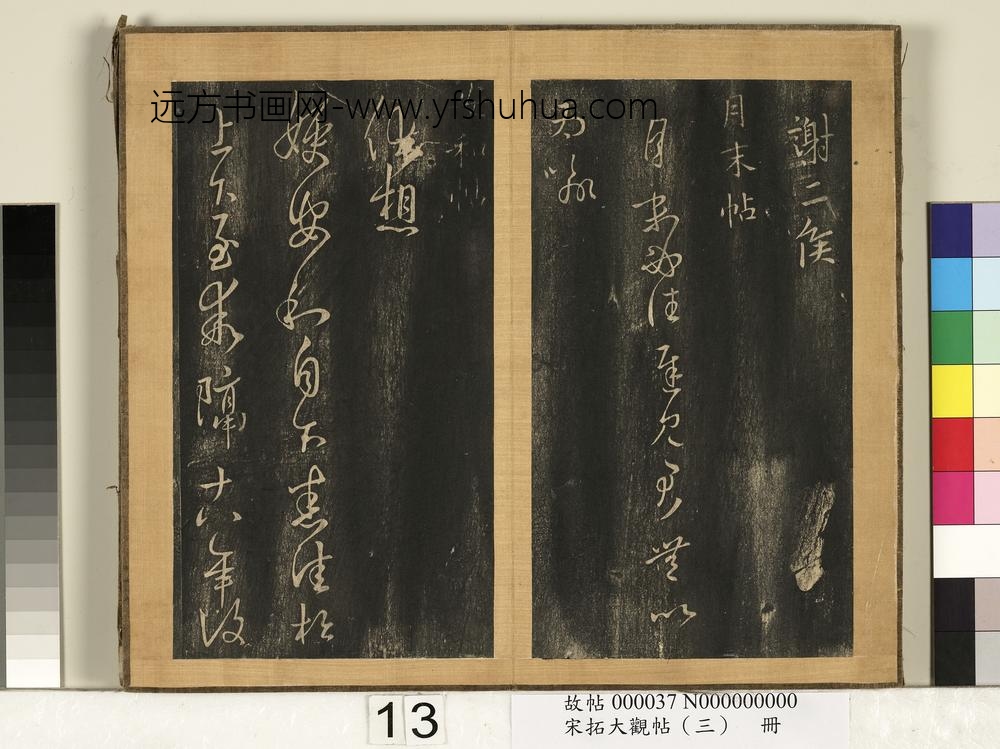 远方书画网-www.yfshuhua.com
謝二侯
月末帖
月末必往遲見君無以
為詠
和
想
嫂安和自下悉佳松
上下至乖隔十八年復
13
故帖 000037 N000000000
宋拓大觀帖（三） 冊